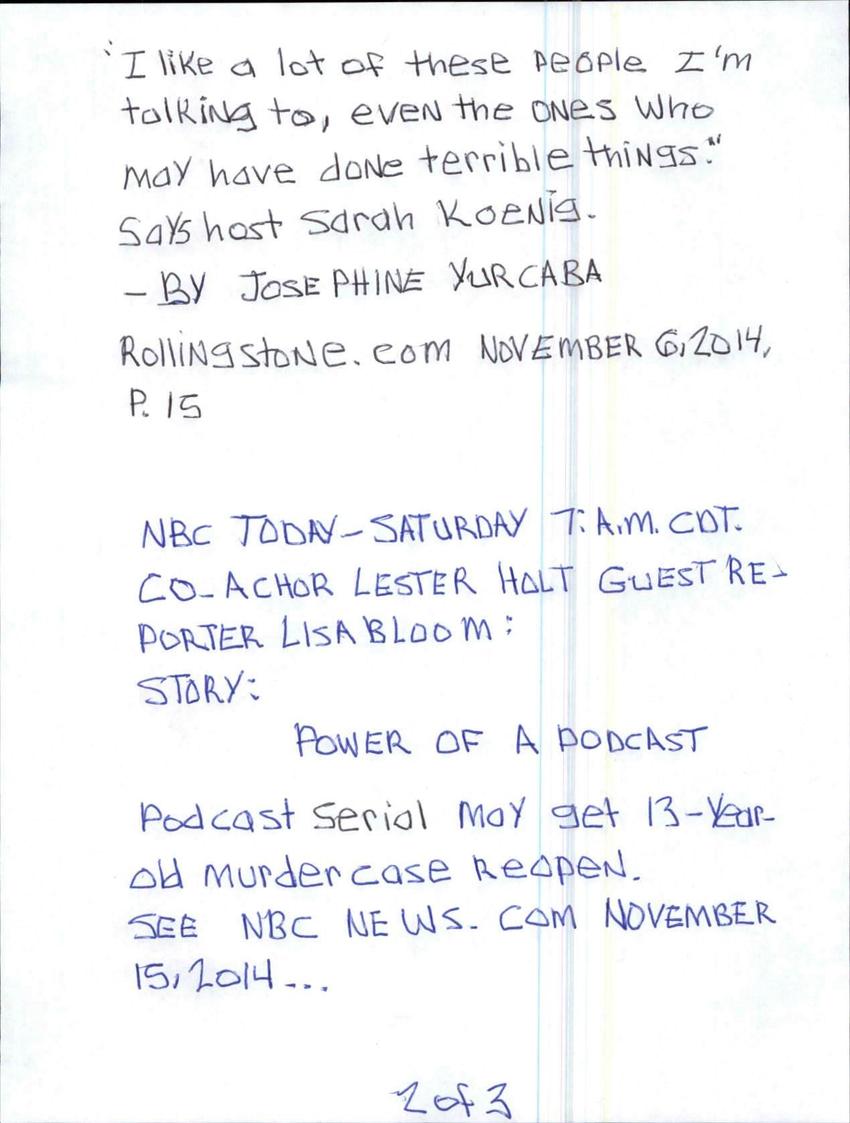 "I like a lot of these people I'm
talking to, even the ones who
may have done terrible things."
Says host Sarah Koenig.
- BY JOSEPHINE YURCABA
Rollingstone.com NOVEMBER 6, 2014,
P. 15
NBC TODAY - SATURDAY 7: A.M. CDT.
CO-ACHOR LESTER HOLT GUEST RE-
PORTER LISA BLOOM:
STORY:
POWER OF A PODCAST
Podcast Serial may get 13-Year-
old murder case Reopen.
SEE NBC NEWS.COM NOVEMBER
15, 2014...
2 of 3